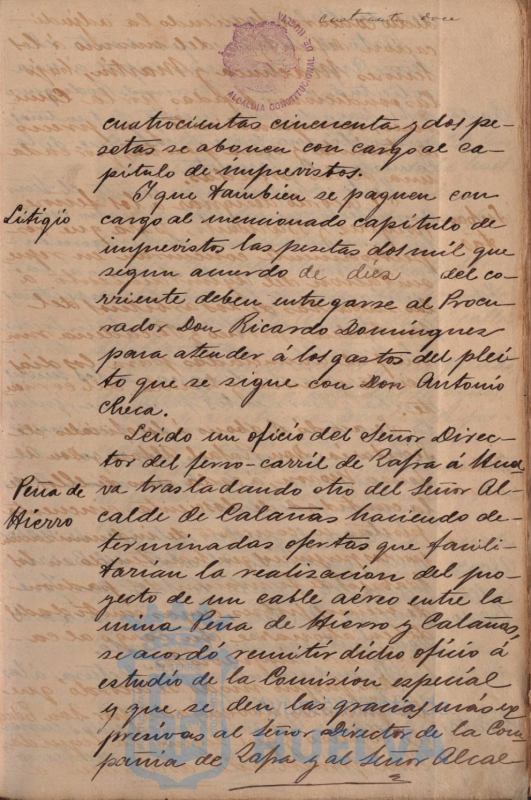 cuarenta y doce
ALCALDIA CONSTITUCIONAL DE HUELVA
cuatrocientas cincuenta y dos pe-
setas se abonen con cargo al ca-
pitulo de imprevistos.
Litigio
Y que tambien se paguen con
cargo al mencionado capitulo de
imprevistos las pesetas dos mil que
segun acuerdo de diez del co-
rriente deben entregarse al Procu-
rador Don Ricardo Domínguez
para atender á los gastos del plei-
to que se sigue con Don Antonio
Checa.
Peña de
Hierro
Leido un oficio del Señor Direc-
tor del ferro-carril de Zafra á Huel
va trasladando otro del Señor Al-
calde de Calañas haciendo de-
terminadas ofertas que facili-
tarían la realización del pro-
yecto de un cable aéreo entre la
mina Peña de Hierro y Calañas,
se acordó remitir dicho oficio á
estudio de la Comisión especial
y que se den las gracias más ex
presivas al Señor Director de la Com
pania de Zafra y al Señor Alcal-
HUELVA